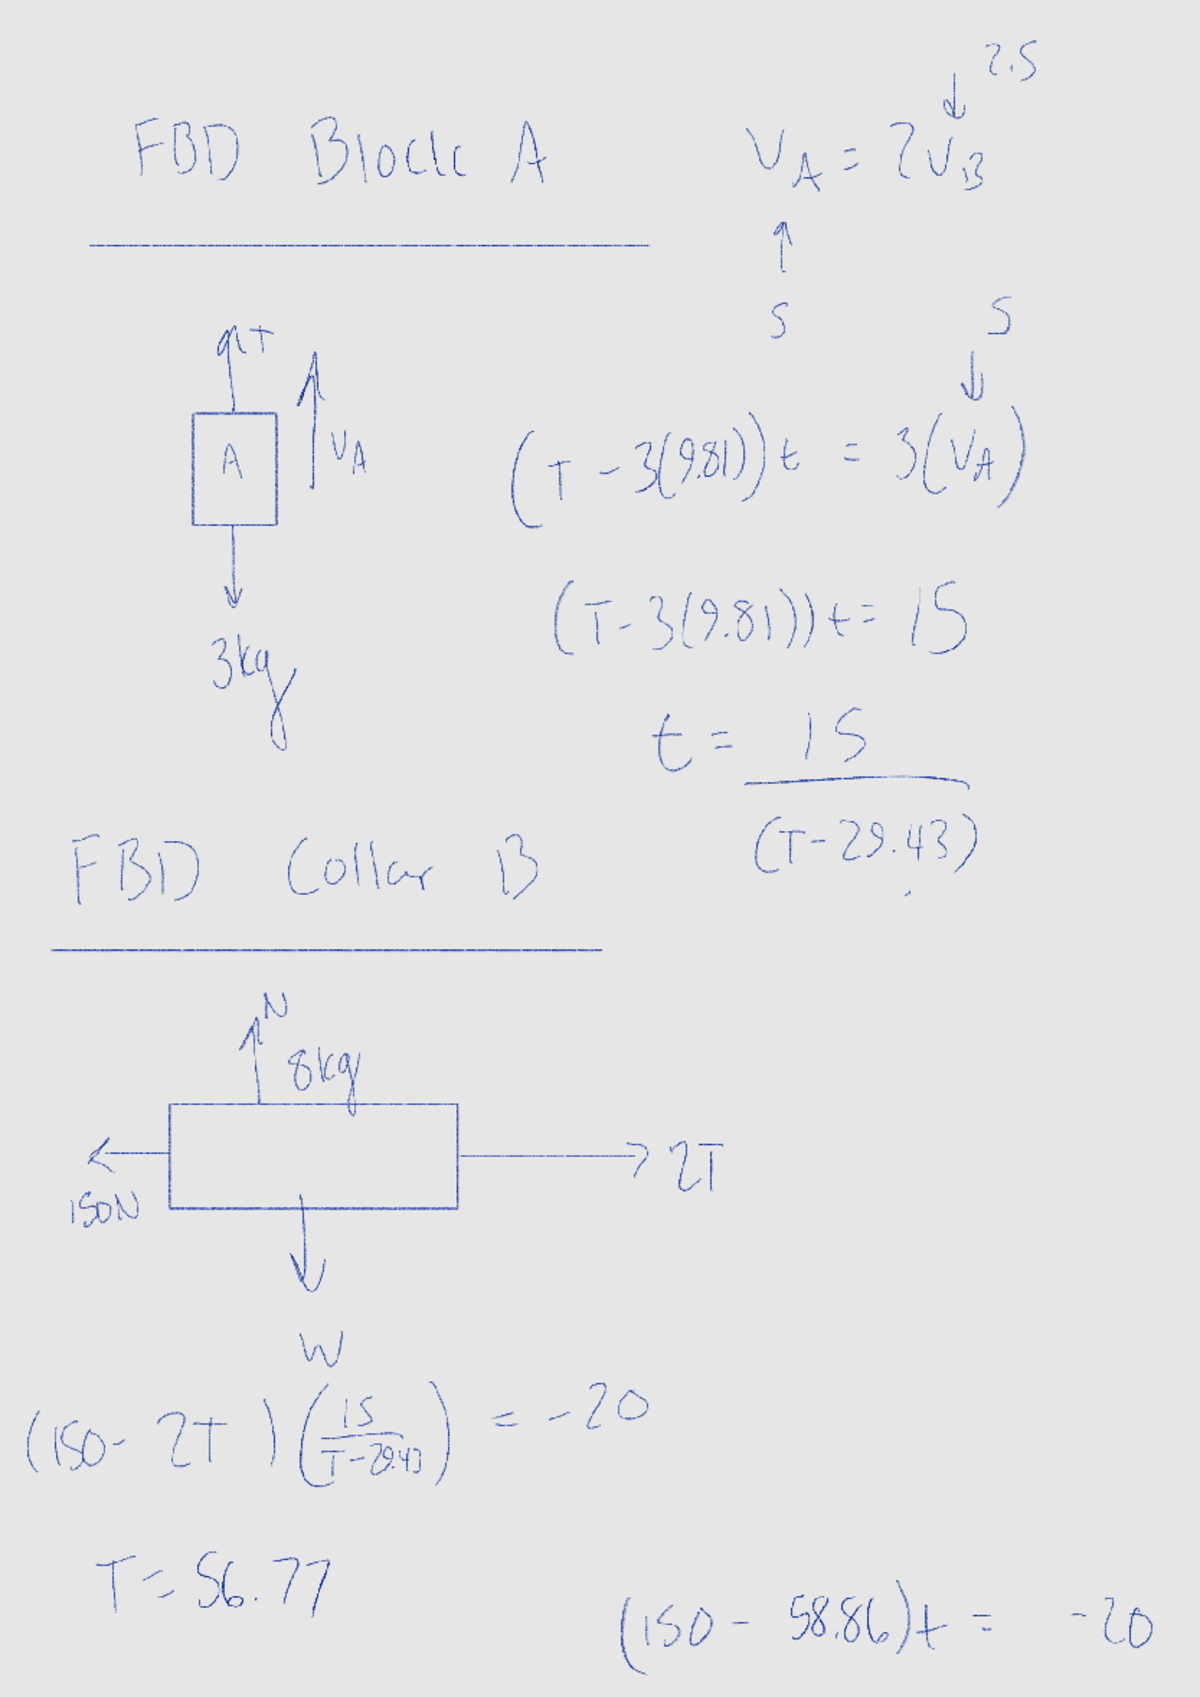 2.5
↓
FBD Block A
V_A = 2V_B
↑
5
5
↓
T
A
V_A
(T - 3(9.81))t = 3(V_A)
(T - 3(9.81))t = 15
3kg
t = 15 / (T - 29.43)
FBD Collar B
N
8kg
150N
2T
W
(150 - 2T)(15 / T - 29.43) = -20
T = 56.77
(150 - 58.86)t = -20